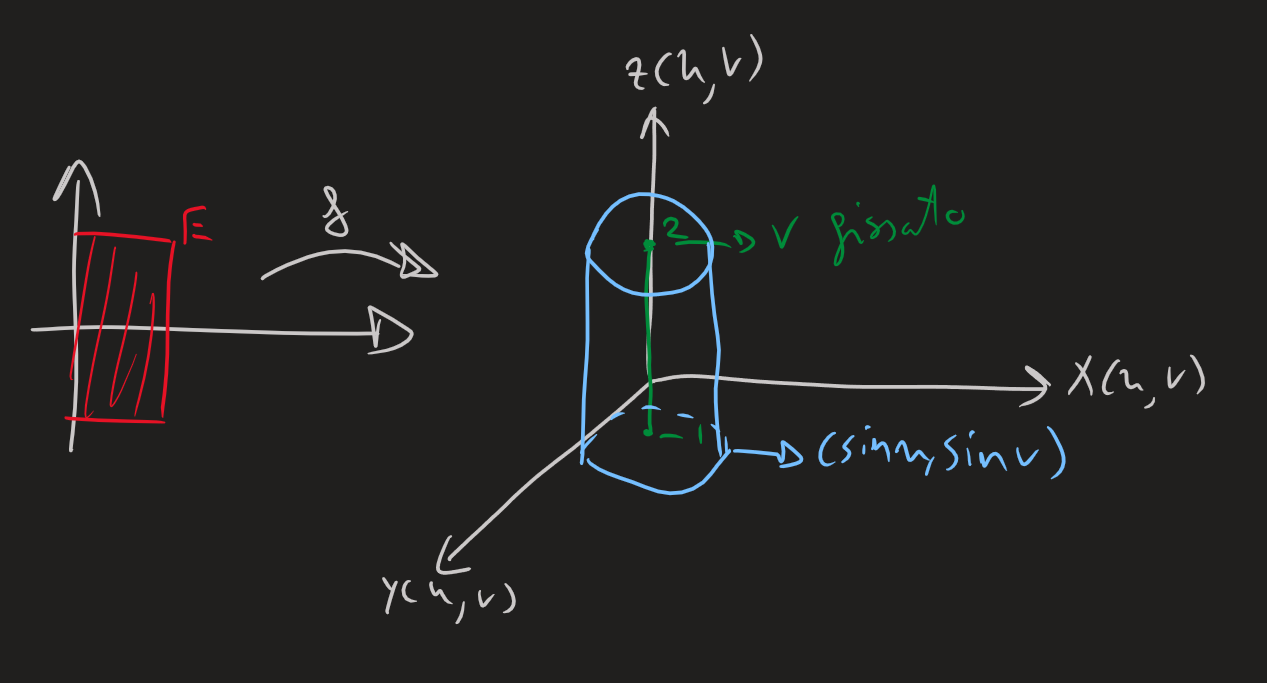 z(u,v)
E
f
2
v fissato
x(u,v)
-1
(sinu,sinv)
y(u,v)